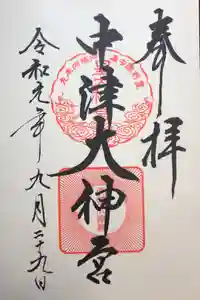 奉拝
中津大神宮
令和元年九月二十九日